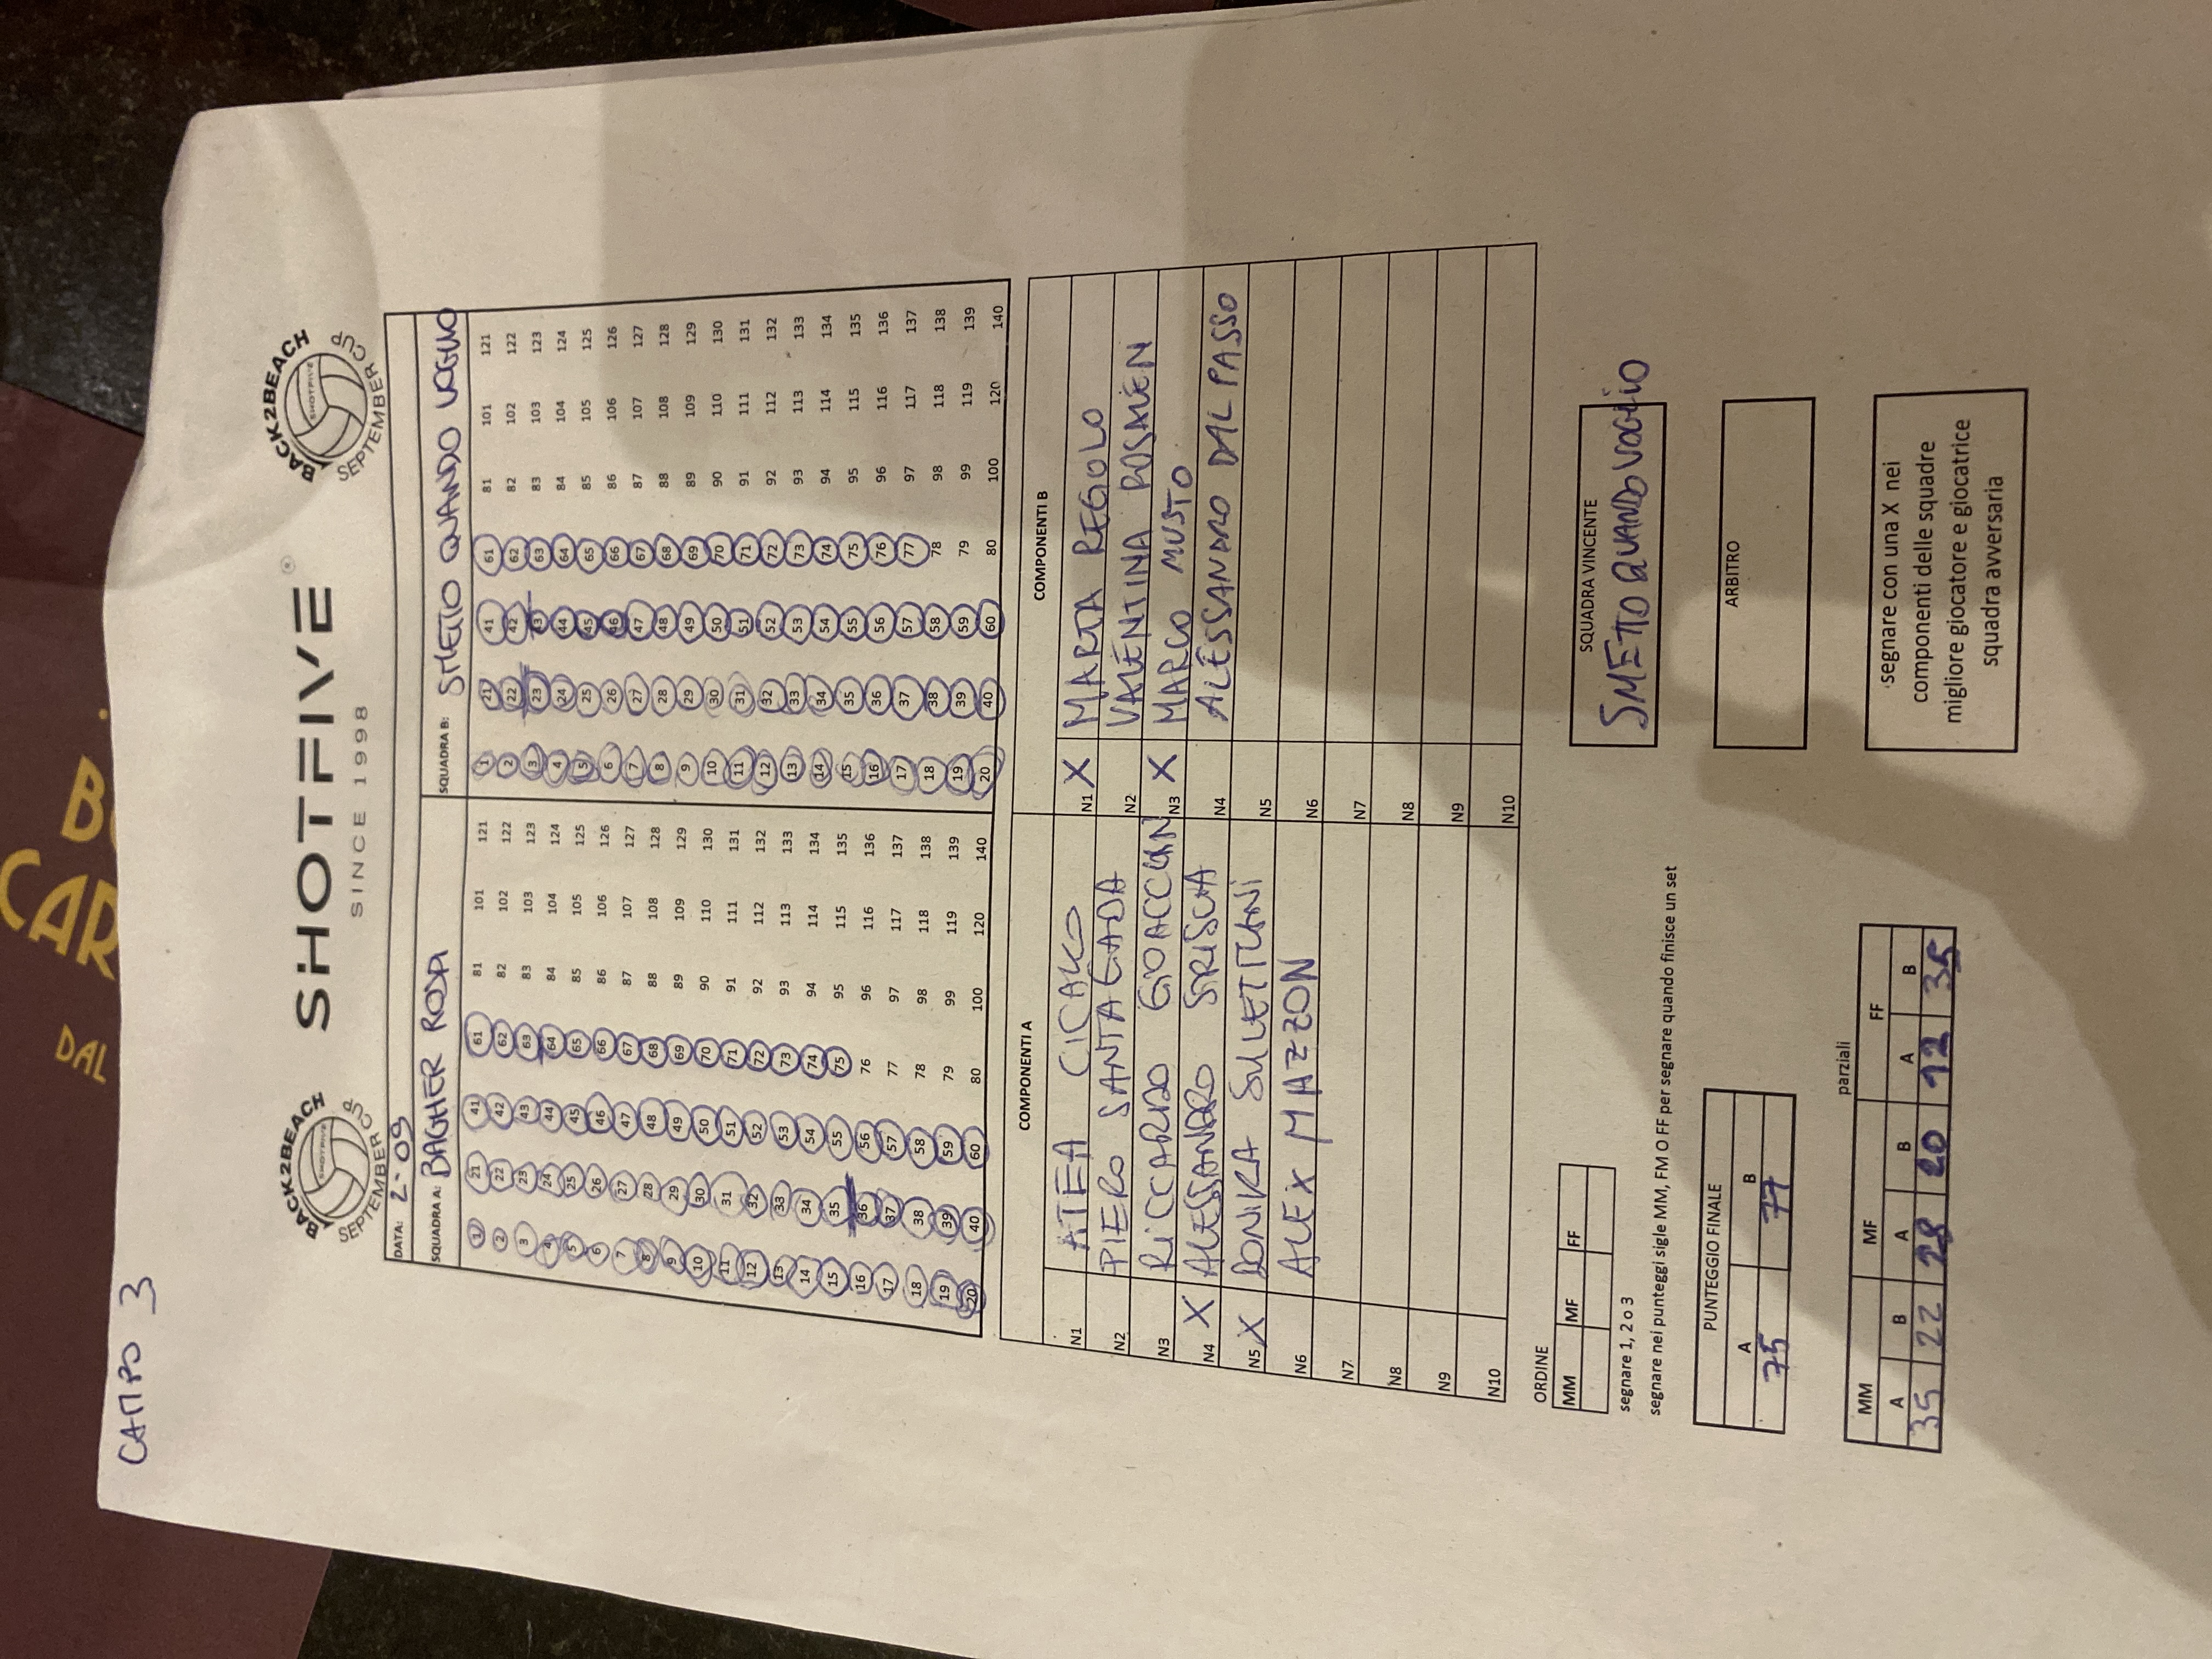 BO
CAR
DAL
CAMPO 3
BACK2BEACH
SHOTFIVE
SEPTEMBER CUP
SHOTFIVE ®
SINCE 1998
BACK2BEACH
SHOTFIVE
SEPTEMBER CUP
DATA: 2-09
SQUADRA A: BAGHER RODA SQUADRA B: SMETTO QUANDO VOGLIO
1 21 41 61 81 101 121 1 21 41 61 81 101 121
2 22 42 62 82 102 122 2 22 42 62 82 102 122
3 23 43 63 83 103 123 3 23 43 63 83 103 123
4 24 44 64 84 104 124 4 24 44 64 84 104 124
5 25 45 65 85 105 125 5 25 45 65 85 105 125
6 26 46 66 86 106 126 6 26 46 66 86 106 126
7 27 47 67 87 107 127 7 27 47 67 87 107 127
8 28 48 68 88 108 128 8 28 48 68 88 108 128
9 29 49 69 89 109 129 9 29 49 69 89 109 129
10 30 50 70 90 110 130 10 30 50 70 90 110 130
11 31 51 71 91 111 131 11 31 51 71 91 111 131
12 32 52 72 92 112 132 12 32 52 72 92 112 132
13 33 53 73 93 113 133 13 33 53 73 93 113 133
14 34 54 74 94 114 134 14 34 54 74 94 114 134
15 35 55 75 95 115 135 15 35 55 75 95 115 135
16 36 56 76 96 116 136 16 36 56 76 96 116 136
17 37 57 77 97 117 137 17 37 57 77 97 117 137
18 38 58 78 98 118 138 18 38 58 78 98 118 138
19 39 59 79 99 119 139 19 39 59 79 99 119 139
20 40 60 80 100 120 140 20 40 60 80 100 120 140
COMPONENTI A COMPONENTI B
N1 ATEA CICAKO N1 X MARTA REGOLO
N2 PIERO SANTAGADA N2 VALENTINA ROSMEN
N3 RICCARDO GIOACCHIN N3 X MARCO MUSTO
N4 X ALESSANDRO N4 ALESSANDRO DAL PASSO
N5 X DONIKA N5
N6 ALEX MAZZON N6
N7 N7
N8 N8
N9 N9
N10 N10
ORDINE
MM MF FF
segnare 1, 2 o 3
segnare nei punteggi sigle MM, FM O FF per segnare quando finisce un set
SQUADRA VINCENTE
SMETTO QUANDO VOGLIO
PUNTEGGIO FINALE
A B
75 77
ARBITRO
parziali
MM MF FF
A B A B A B
35 22 28 20 12 35
segnare con una X nei
componenti delle squadre
migliore giocatore e giocatrice
squadra avversaria